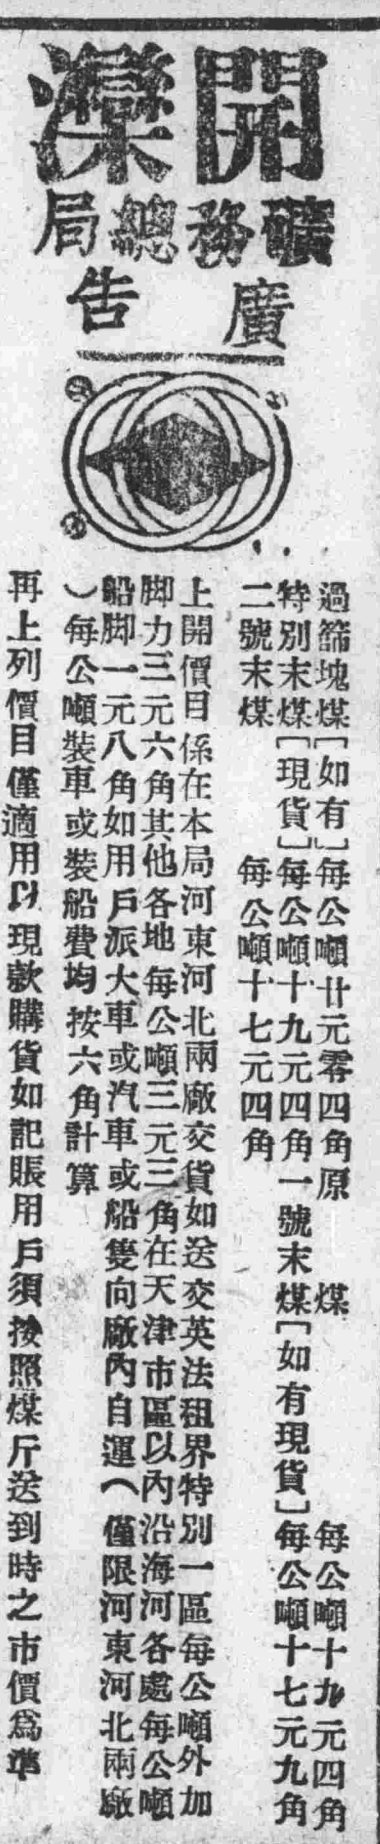 開灤
礦務總局
廣告
過篩塊煤[如有]每公噸廿元零四角原煤每公噸十九元四角
特別末煤[現貨]每公噸十九元四角一號末煤[如有現貨]每公噸十七元九角
二號末煤每公噸十七元四角
上開價目係在本局河東河北兩廠交貨如送交英法租界特別一區每公噸外加
脚力三元六角其他各地每公噸三元三角在天津市區以內沿海河各處每公噸
船脚一元八角如用戶派大車或汽車或船隻向廠內自運(僅限河東河北兩廠
)每公噸裝車或裝船費均按六角計算
再上列價目僅適用以現款購貨如記賬用戶須按照煤斤送到時之市價為準